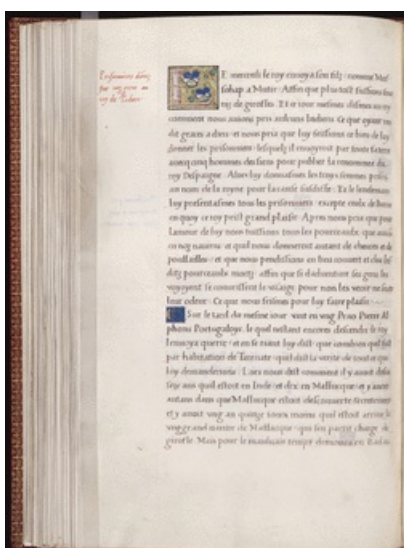 Prisonniers
roy de
E mercredi le roy envoya son filz nomme Mos
sahap a Mutir Affin que plus tost fussions four
nis de giroffle. Et ce jour mesmes disines au roy
comment nous avions pris aulcuns Indians Ce que ayant
dit graces a dieu et nous pria que luy feissions ce bien de luy
donner les prisonniers lesquelz il envoyroit par toute
avec cinq hommes des siens pour publier la renommee du
roy Despaigne. Alors luy donnasmes les troys femmes
au nom de la royne pour la cause susdicte. Et le lendemain
luy presentasmes tous les prisonniers excepte ceulx de
en quoy ce roy prist grand plaisir. Apres nous pria que pour
lamour de luy nous tuissions tous les pourceaulx que
en noz navires et quil nous donneroit autant de chevres et de
poullailles et que nous pendissions en lieu couvert et clos les
ditz pourceaulx mortz affin que si dadventure ses gens les
voyoyent se couvrissent le visage pour non les veoir ne
leur odeur. Ce que nous feismes pour luy faire plaisir
Sur le tard du mesme jour vint en ung Prao Pierre Al
phonse Portugaloys. le quel nestant encores descendu le roy
lenvoya querir et en se riant luy dist que combien quil fust
par habitation de Tarenate quil dist la verite de tout ce que
luy demanderions. Lors nous dist comment il y avoit desia
seze ans quil estoit en Inde et dix en Mallucque et y avoit
autans dans que Mallucque estoit descouverte secretement
et y avoit ung an quinze jours moins quil estoit arrive la
ung grand navire de Mallacque qui sen partit charge de
girofle. Mais pour le maulvais temps demoura en